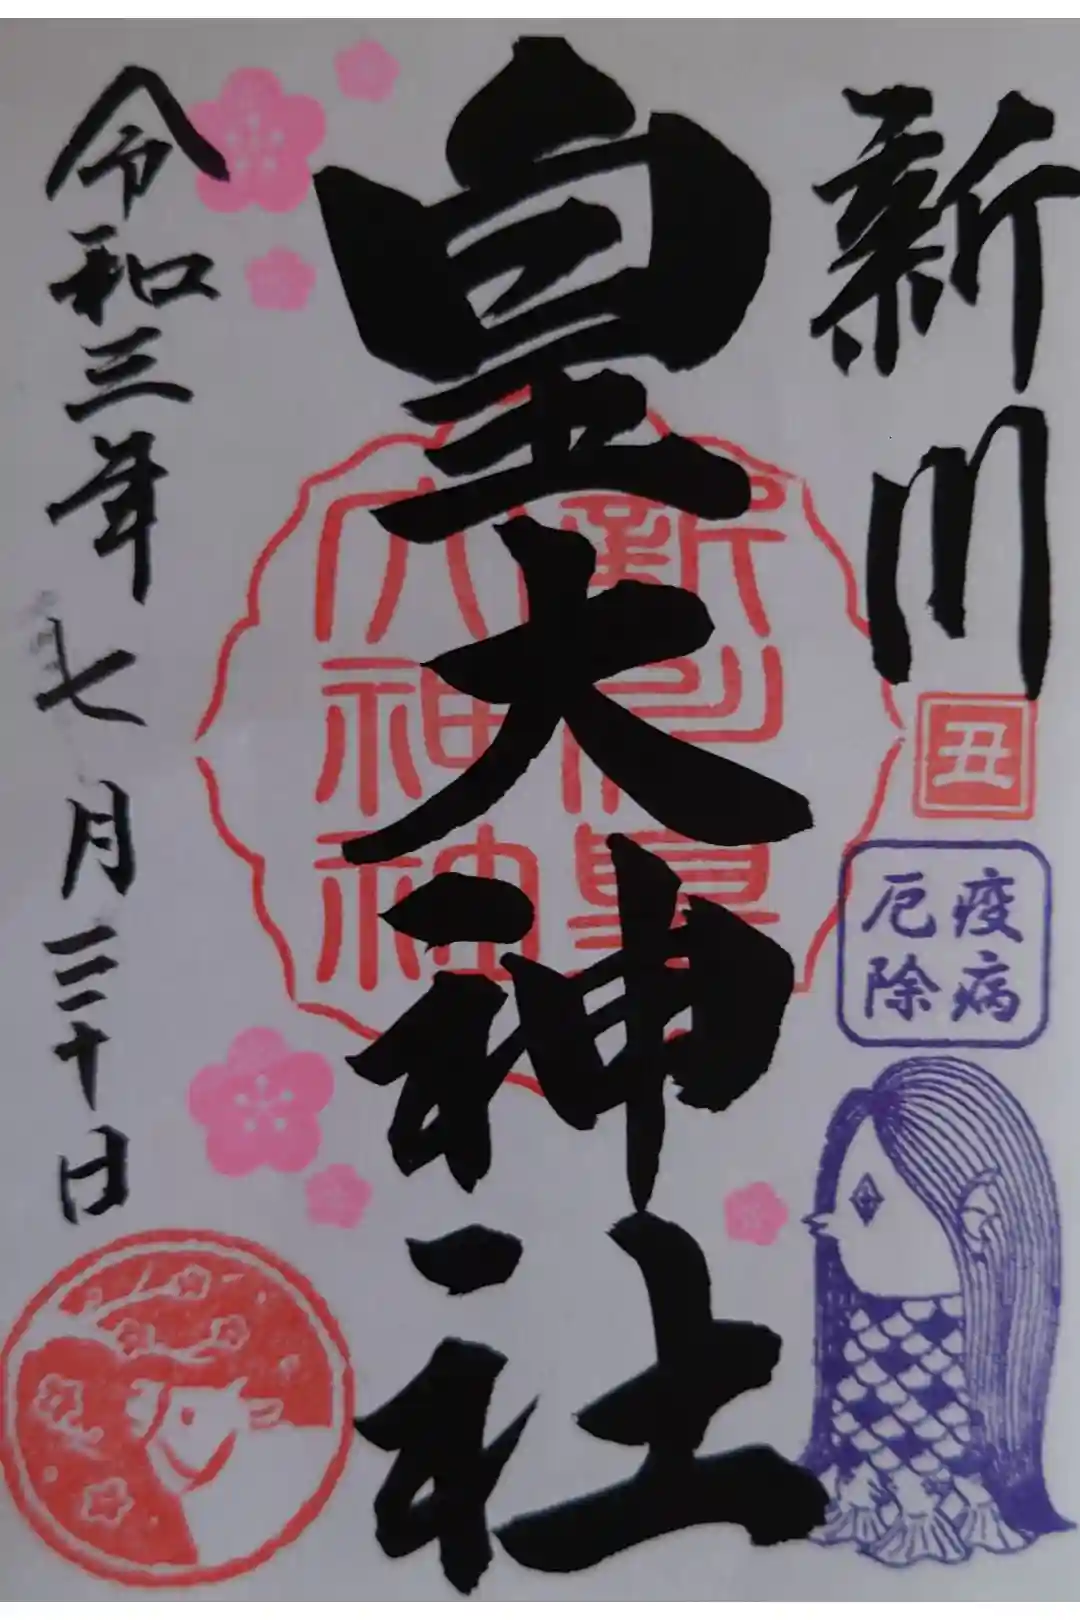 新川
皇大神社
丑
疫病
厄除
新川皇
大神社
令和三年七月三十日